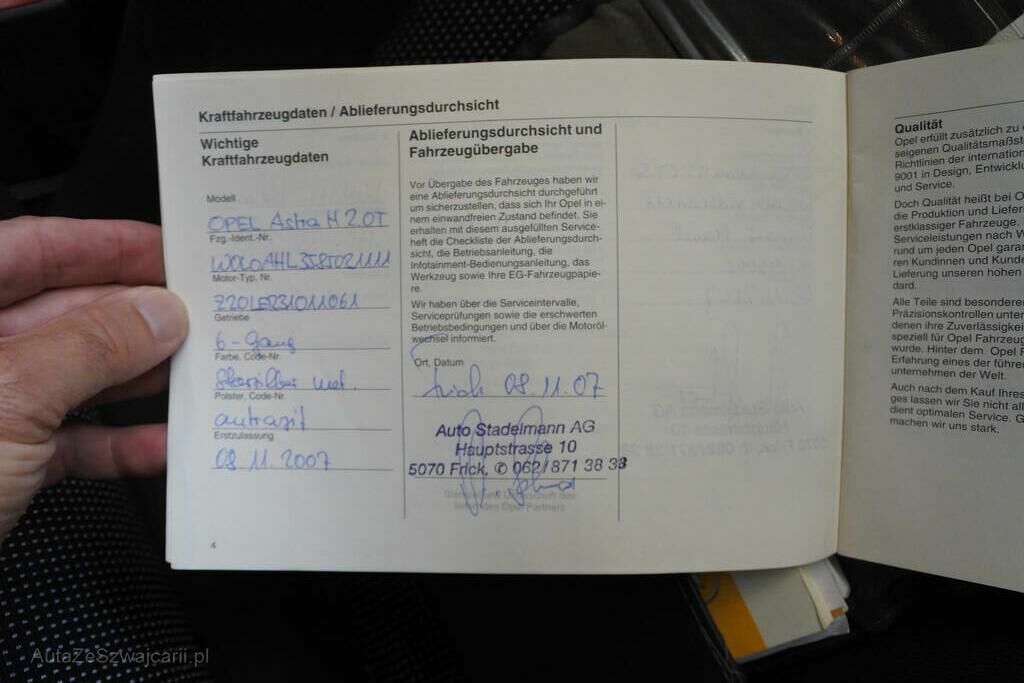 Kraftfahrzeugdaten / Ablieferungsdurchsicht
Wichtige
Kraftfahrzeugdaten
Modell
OPEL Astra H 2.0T
Fzg.-Ident.-Nr.
W0L0AHL3585021111
Motor-Typ, Nr.
Z20LER31011061
Getriebe
6-Gang
Farbe, Code-Nr.
Starsilber met.
Polster, Code-Nr.
antrazit
Erstzulassung
08.11.2007
4
Ablieferungsdurchsicht und
Fahrzeugübergabe
Vor Übergabe des Fahrzeuges haben wir
eine Ablieferungsdurchsicht durchgeführt
um sicherzustellen, dass sich Ihr Opel in ei-
nem einwandfreien Zustand befindet. Sie
erhalten mit diesem ausgefüllten Service-
heft die Checkliste der Ablieferungsdurch-
sicht, die Betriebsanleitung, die
Infotainment-Bedienungsanleitung, das
Werkzeug sowie Ihre EG-Fahrzeugpapie-
re.
Wir haben über die Serviceintervalle,
Serviceprüfungen sowie die erschwerten
Betriebsbedingungen und über die Motoröl-
wechsel informiert.
Ort, Datum
Frick 08.11.07
Auto Stadelmann AG
Hauptstrasse 10
5070 Frick, ✆ 062/871 38 38
Stempel und Unterschrift des
liefernden Opel Partners
Qualität
Opel erfüllt zusätzlich zu
seigenen Qualitätsmaßst
Richtlinien der internation
9001 in Design, Entwicklu
und Service.
Doch Qualität heißt bei O
die Produktion und Liefer
erstklassiger Fahrzeuge.
Serviceleistungen nach W
rund um jeden Opel garan
ren Kundinnen und Kunde
Lieferung unseren hohen
dard.
Alle Teile sind besondere
Präzisionskontrollen unter
denen ihre Zuverlässigkei
speziell für Opel Fahrzeug
wurde. Hinter dem Opel F
Erfahrung eines der führen
unternehmen der Welt.
Auch nach dem Kauf Ihres
ges lassen wir Sie nicht all
dient optimalen Service. G
machen wir uns stark.
AutaZeSzwajcarii.pl